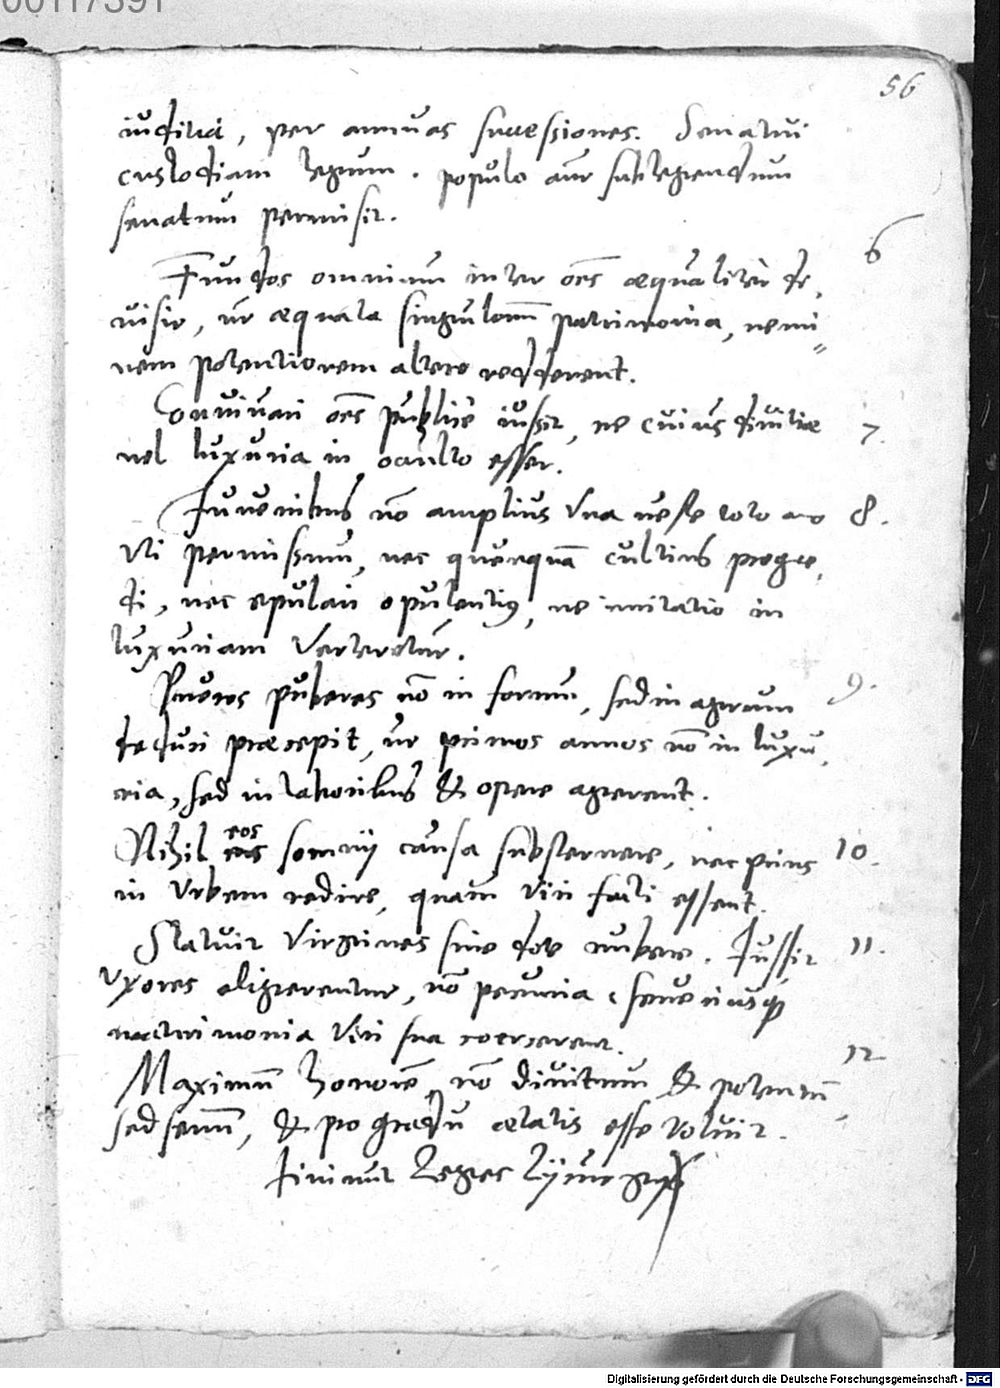 00117391
56
iuditia, per annuas successiones. Senatui
custodiam legum. populo aut subtegendum
senatum permisit.
Fundos omnium inter oēs æqualiter de, 6
uisit, ut æquata singulorum patrimonia, nemi=
nem potentiorem altero redderent.
Conuiuari oēs publice iussit, ne cuius diuitiæ 7.
uel luxuria in oculto esset.
Iuuenibus nō amplius Vna ueste toto ano 8.
Vti permissum, nec quenquā cultius progre,
di, nec epulari opulentius, ne immitatio in
luxuriam Verteretur.
Pueros puberes nō in forum, sed in agrum 9.
deduci præcepit, ut primos annos nō in luxu,
ria, sed in laboribus & opere agerent.
Nihil eos somnij causa substernere, nec prius 10.
in Vrbem redire, quam Viri facti essent.
Statuit Virgines sine dote nubere. Iussit 11.
Vxores eligerentur, nō pecunia, seueriusq
matrimonia Viri sua coercerent.
Maximū honorē nō diuitum & potentū, 12
sed senū, & pro gradu ætatis esse Voluit.
finiunt Leges Lijcurgi
Digitalisierung gefördert durch die Deutsche Forschungsgemeinschaft - DFG